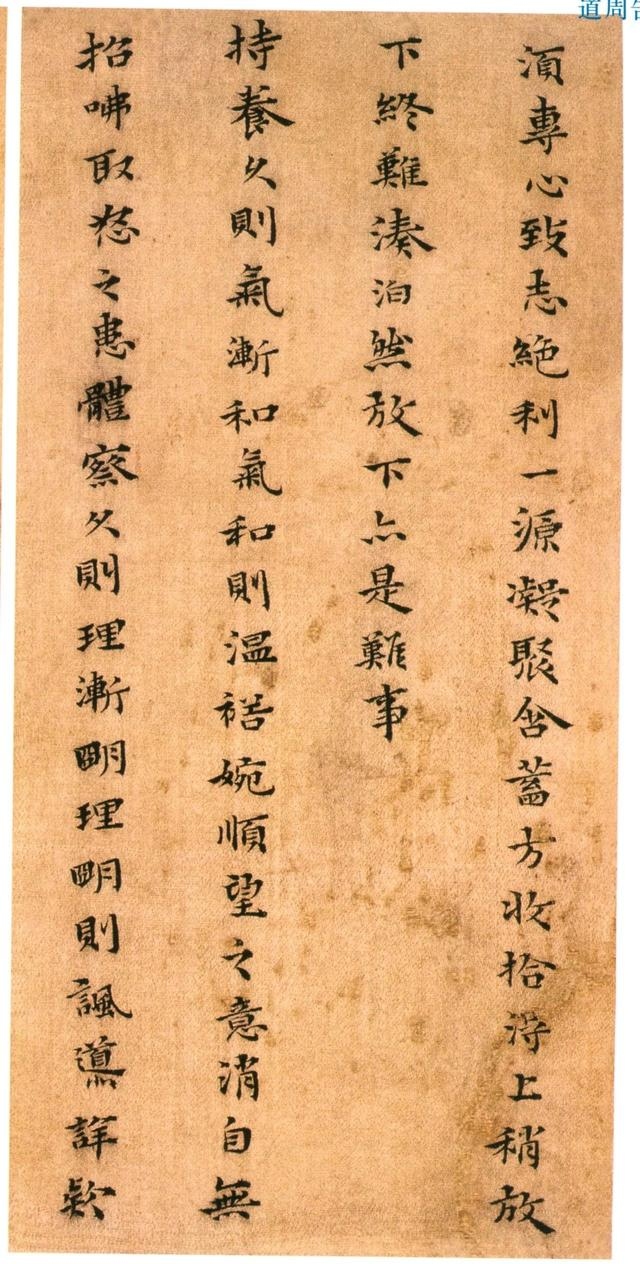 道周
湏專心致志絶利一源凝聚含蓄方收拾淂上稍放
下終難湊泊然放下亦是難事
持養久則氣漸和氣和則温裕婉順望之意消自無
招咈取怒之患體察久則理漸明理明則諷導詳款